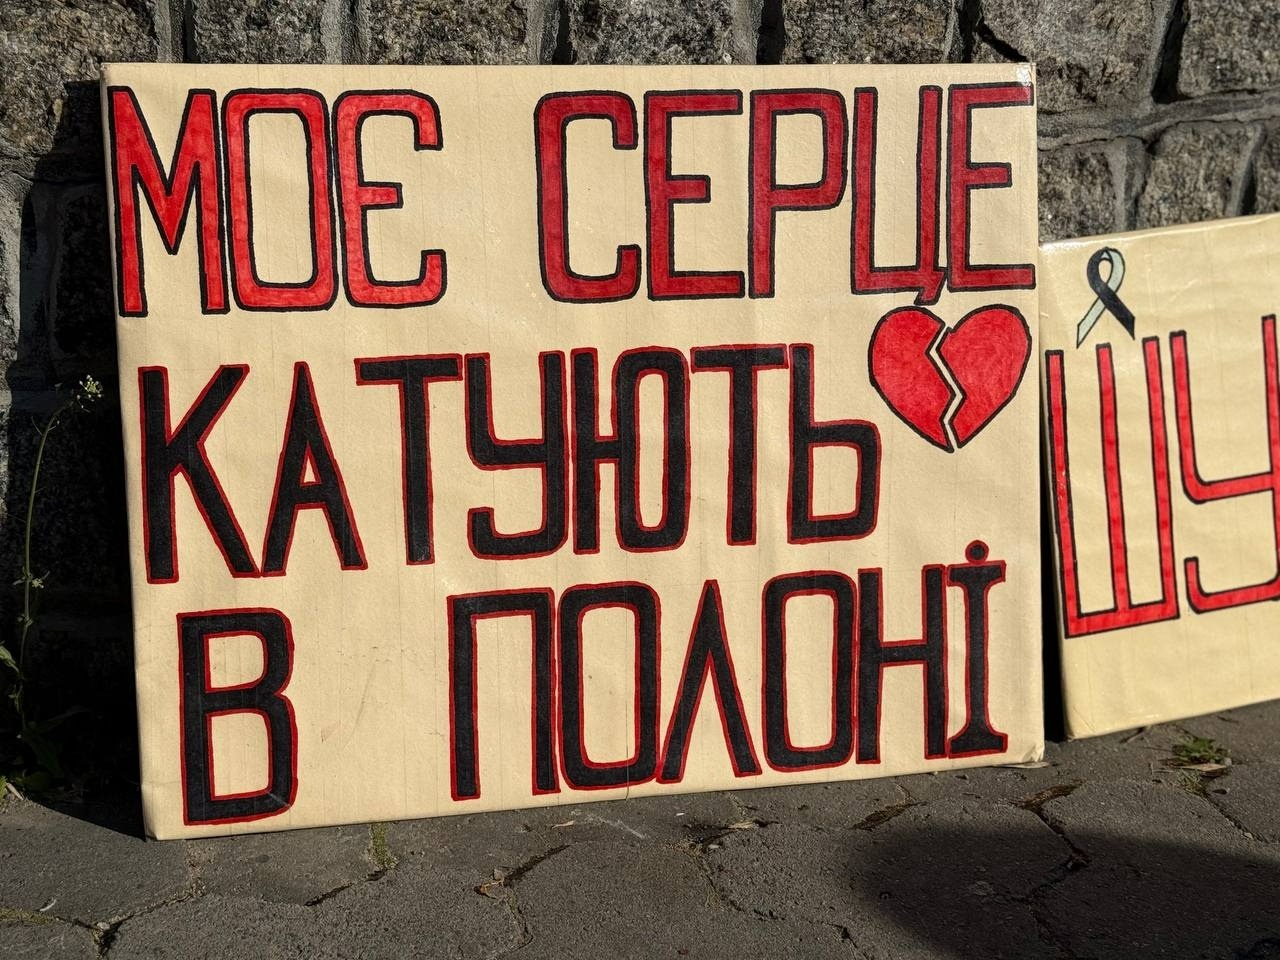 МОЄ СЕРЦЕ
КАТУЮТЬ
В ПОЛОНІ
ШУ